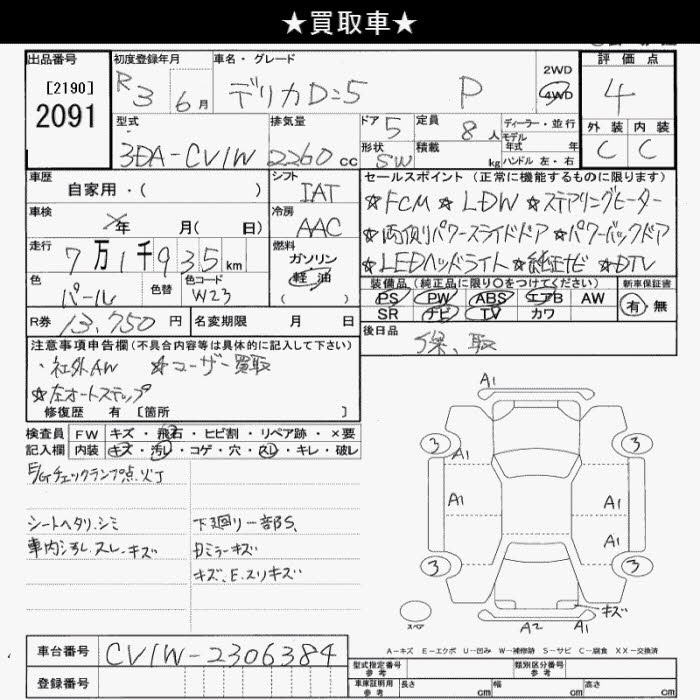 ★買取車★
出品番号 初度登録年月 車名・グレード 2WD 評価点
[2190] R3 6月 デリカD:5 P 4WD 4
2091
型式 排気量 ドア 5 定員 8人 ディーラー・並行 外装 内装
モデル年式 年
3DA-CV1W 2260cc 形状 SW 積載 kg ハンドル 左・右 C C
車歴 シフト セールスポイント(正常に機能するものに限ります)
自家用・( ) IAT ☆FCM ☆LDW ☆ステアリングヒーター
車検 年 月( 日) 冷房 AAC ☆両側パワースライドドア ☆パワーバックドア
走行 7万1千935km 燃料 ガソリン ☆LEDヘッドライト ☆純正ナビ ☆DTV
軽油
( )
色 パール 色替 色コード W23 装備品(純正品に限り○をつけてください) 新車保証書
PS PW ABS エアB AW 有・無
SR ナビ TV カワ
R券 13,750円 名変期限 月 日 後日品
保、取
注意事項申告欄(不具合内容等は具体的に記入して下さい)
・社外AW ☆ユーザー買取
☆左オートステップ
修復歴 有 [箇所 ]
検査員 FW キズ・飛石・ヒビ割・リペア跡・×要
記入欄 内装 キズ・汚レ・コゲ・穴・スレ・キレ・破レ
E/Gチェックランプ点灯
シートヘタリ.シミ 下廻り一部S、
車内汚レ.スレ.キズ
キズ、E.スリキズ
A1
3 3
A1
A1 A1
A1
3 3
キズ
スペア A2 A1
A-キズ E-エクボ U-凹み W-補修跡 S-サビ C-腐食 XX-交換済
車台番号 CV1W-2306384
登録番号
型式指定番号 参考 類別区分番号 参考
車庫証明用 参考 長さ cm 幅 cm 高さ cm